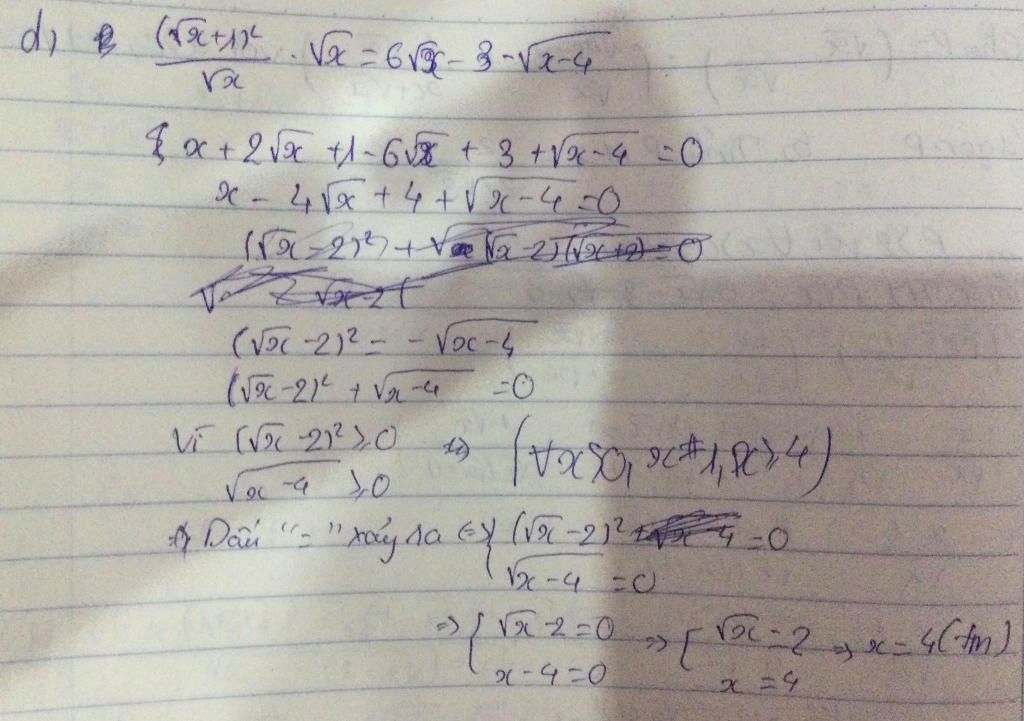 d) (√x+1)²/√x . √x = 6√x - 3 - √x-4
x + 2√x + 1 - 6√x + 3 + √x-4 = 0
x - 4√x + 4 + √x-4 = 0
(√x - 2)²) + √ (√x-2)(√x+2) = 0
(√x - 2)² = - √x-4
(√x-2)² + √x-4 = 0
Vì (√x - 2)² ≥ 0 => (∀x>0, x≠1, x≥4)
√x-4 ≥ 0
Dấu "=" xảy ra <=> { (√x-2)² = 0
√x-4 = 0
=> { √x-2=0 => { √x = 2 => x=4 (tm)
x-4=0 x=4